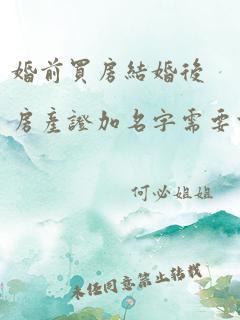 婚前買房結婚後
房產證加名字需要
何必姐姐
未經同意禁止轉載